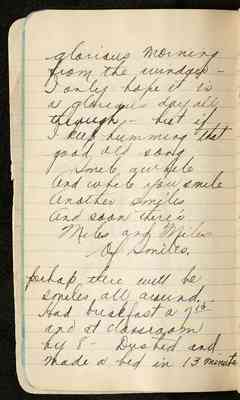 glorious morning
from the window -
I only hope it is
a glorious day all
through - but if
I keep humming that
good old song
Smile awhile
And while you smile
Another smiles
And soon there's
Miles and Miles
Of Smiles.
perhap there will be
smiles all around.
Had breakfast a 7 15
and at classroom
by 8 - Dusted and
made a bed in 13 minute